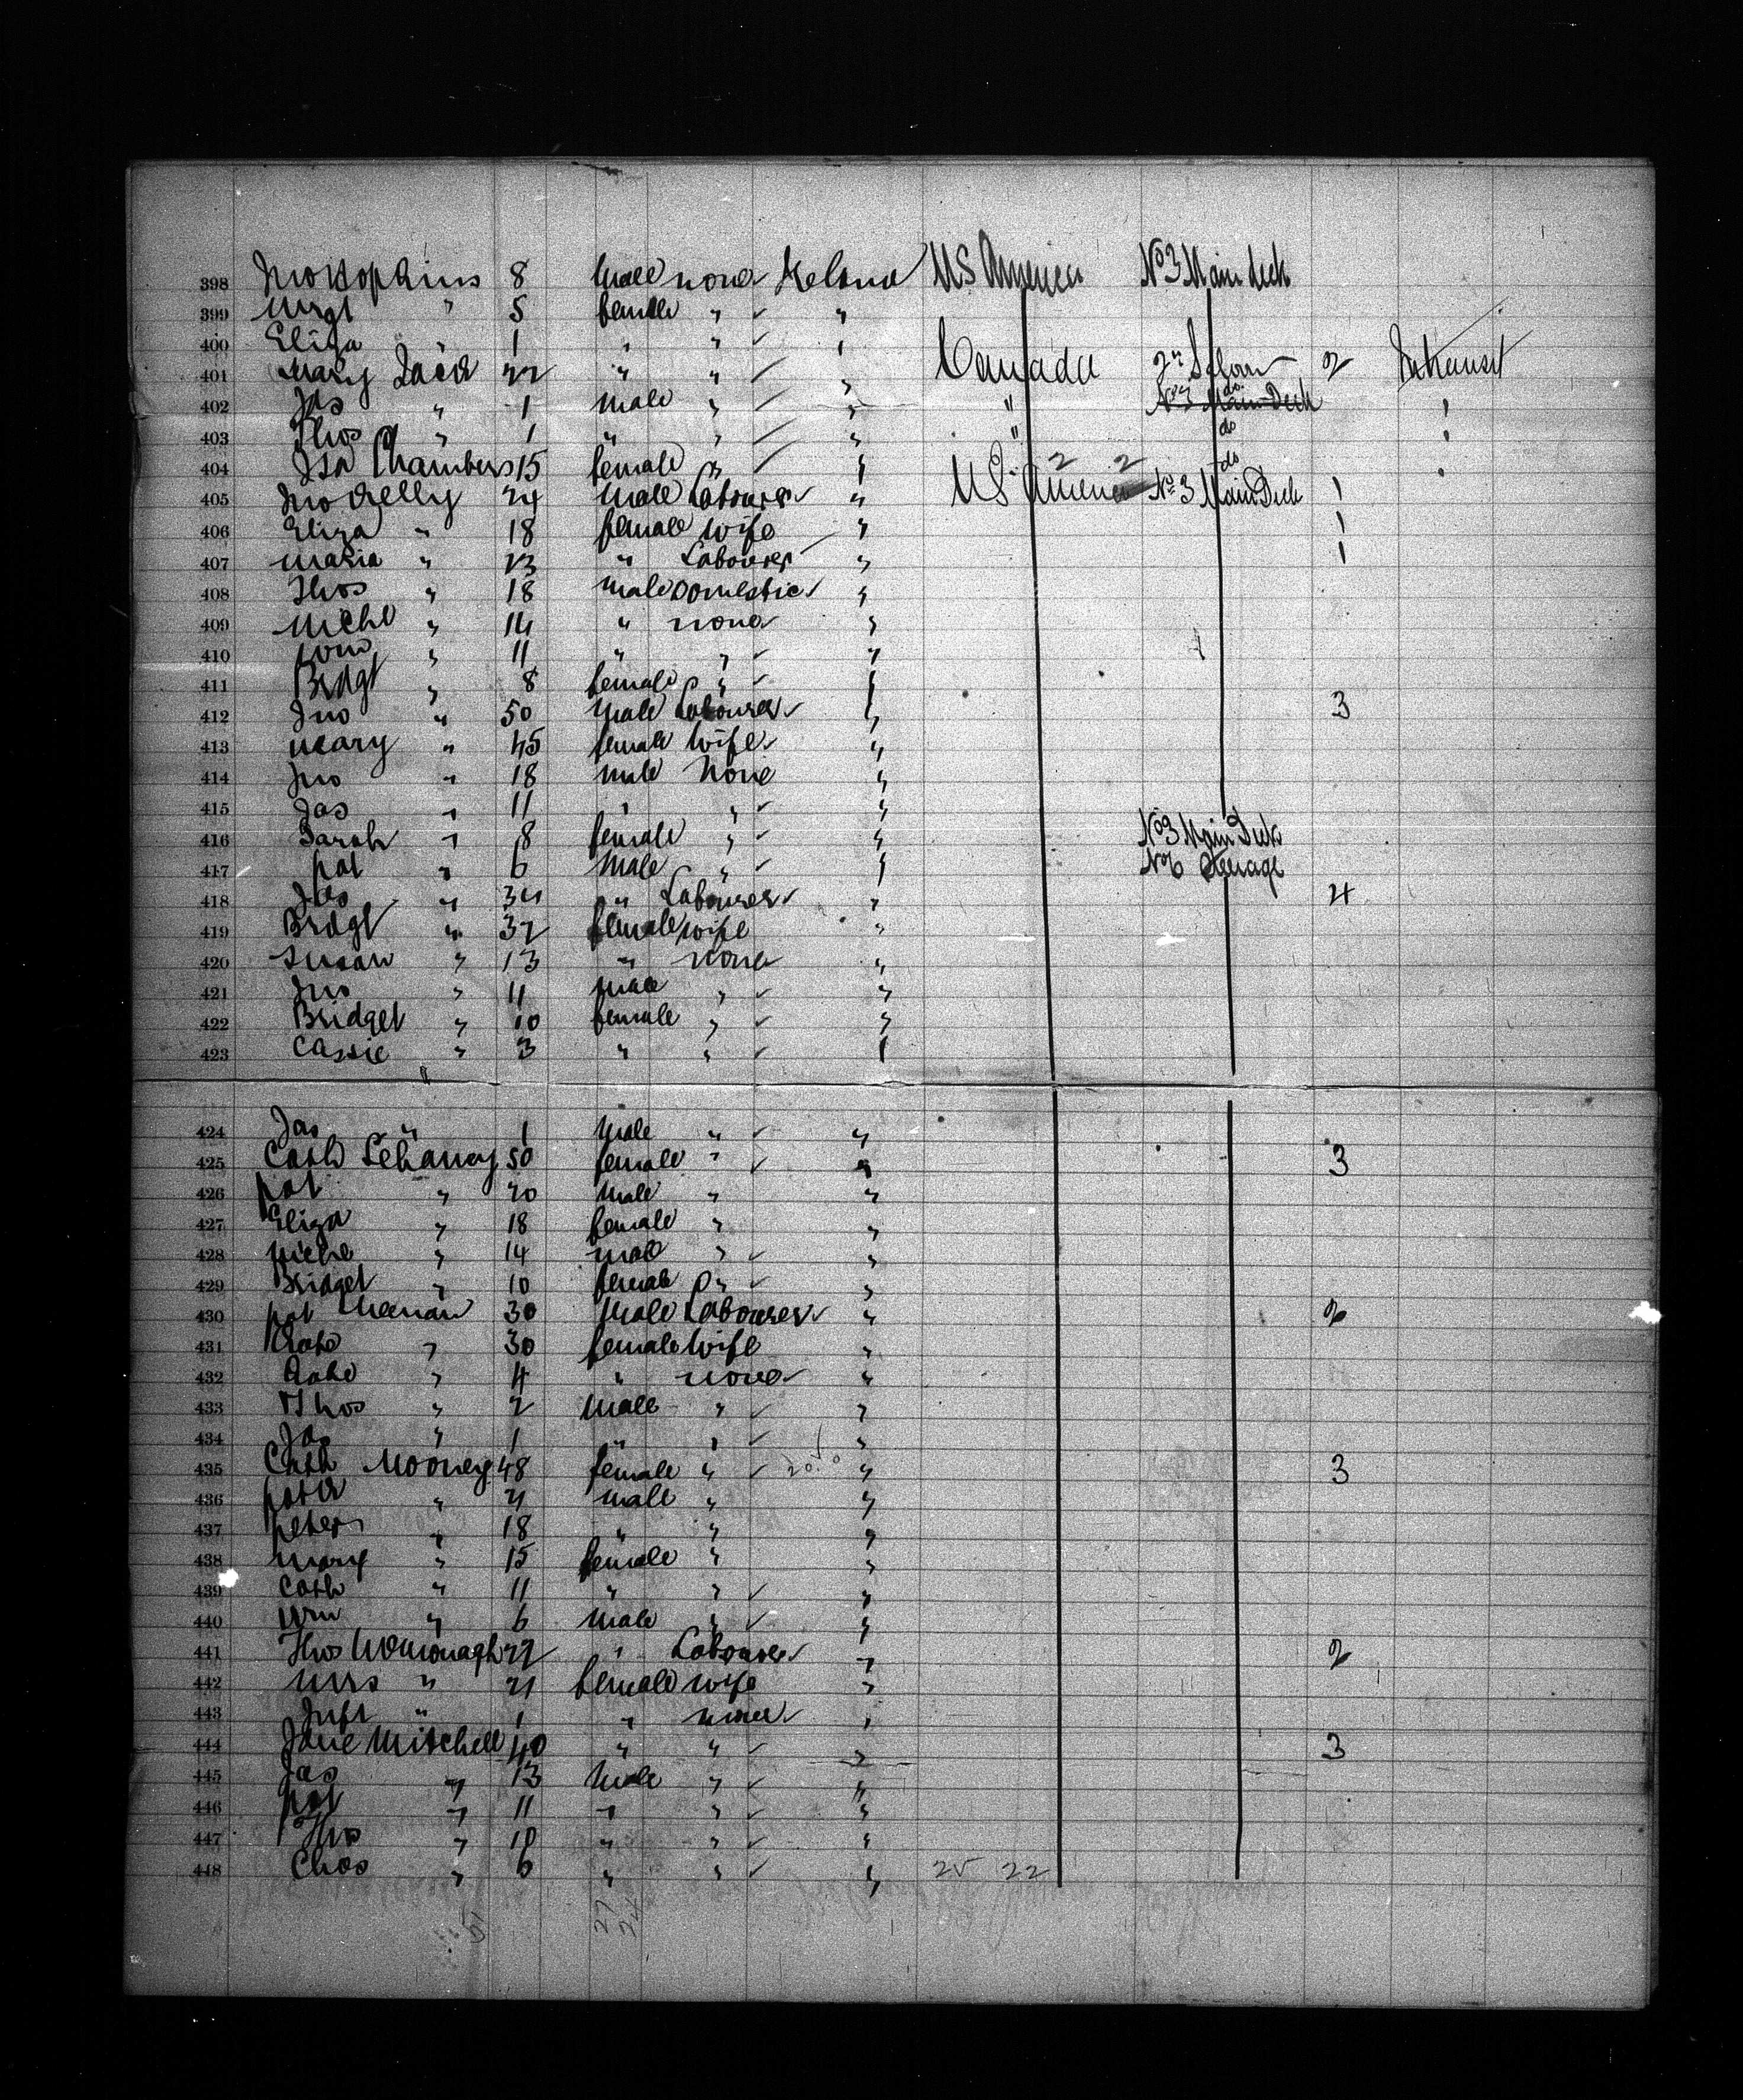 398 Jno Hopkins 8 Male none Ireland US America No 3 Main Deck
399 Mrgt " 5 female " ✓ "
400 Eliza " 1 " " ✓ "
401 Mary 22 " " ✓ " Canada 2nd Saloon 2 In transit
402 Jas " 1 male " ✓ " " No 3 Main Deck do "
403 Thos " 1 " " ✓ " " do "
404 Chambers 15 female " ✓ " 2 2 do "
405 Jno Kelly 24 male Labourer ✓ " US America No 3 Main Deck 1
406 Eliza " 18 female wife " 1
407 Maria " 23 " Labourer " 1
408 Thos " 18 male Domestic ✓ "
409 Michl " 14 " none "
410 " 11 " " ✓ "
411 Bridgt " 8 female " ✓ "
412 Jno " 50 Male Labourer ✓ " 3
413 Mary " 45 female Wife "
414 Jno " 18 male None "
415 Jas " 11 " " ✓ "
416 Sarah " 8 female " ✓ " No 3 Main Deck
417 pat " 6 Male " ✓ " No 6 Steerage
418 Jas " 34 " Labourer ✓ " 4
419 Bridgt " 32 female wife "
420 Susan " 13 " none "
421 Jno " 11 male " ✓ "
422 Bridget " 10 female " ✓ "
423 Cassie " 3 " " ✓ "
424 Jas " 1 Male " ✓ "
425 Cath Lehaney 50 female " ✓ " 3
426 pat " 20 Male " "
427 Eliza " 18 female " "
428 Michl " 14 male " ✓ "
429 Bridget " 10 female " ✓ "
430 pat 30 Male Labourer ✓ " 2
431 Kate " 30 female Wife "
432 Kate " 4 " none "
433 Thos " 2 Male " ✓ "
434 Jas " 1 " " ✓ "
435 Cath Mooney 48 female " ✓ " 3
436 " 21 male " "
437 peter " 18 " " "
438 Mary " 15 female " "
439 Cath " 11 " " ✓ "
440 Wm " 6 Male " ✓ "
441 Thos McMonagh 22 " Labourer ✓ " 2
442 Mrs " 21 female wife "
443 Inft " 1 " none "
444 Jane Mitchell 40 " " ✓ " 3
445 Jas " 13 Male " ✓ "
446 pat " 11 " " ✓ "
447 Thos " 10 " " ✓ "
448 Chas " 6 " " ✓ " 25 22
27
24